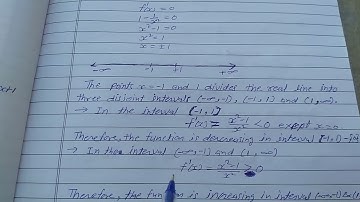 f'(x) = 0
1 - 1/x² = 0
x² - 1 = 0
x² = 1
x = ±1
-∞ -1 +1 +∞
The points x = -1 and 1 divides the real line into
three disjoint intervals (-∞, -1), (-1, 1) and (1, ∞)
→ In the interval [-1, 1]
f'(x) = x²-1/x² < 0 except x = 0
Therefore, the function is decreasing in interval
→ In the interval (-∞, -1) and (1, ∞)
f'(x) = x²-1/x² > 0
Therefore, the function is increasing in interval